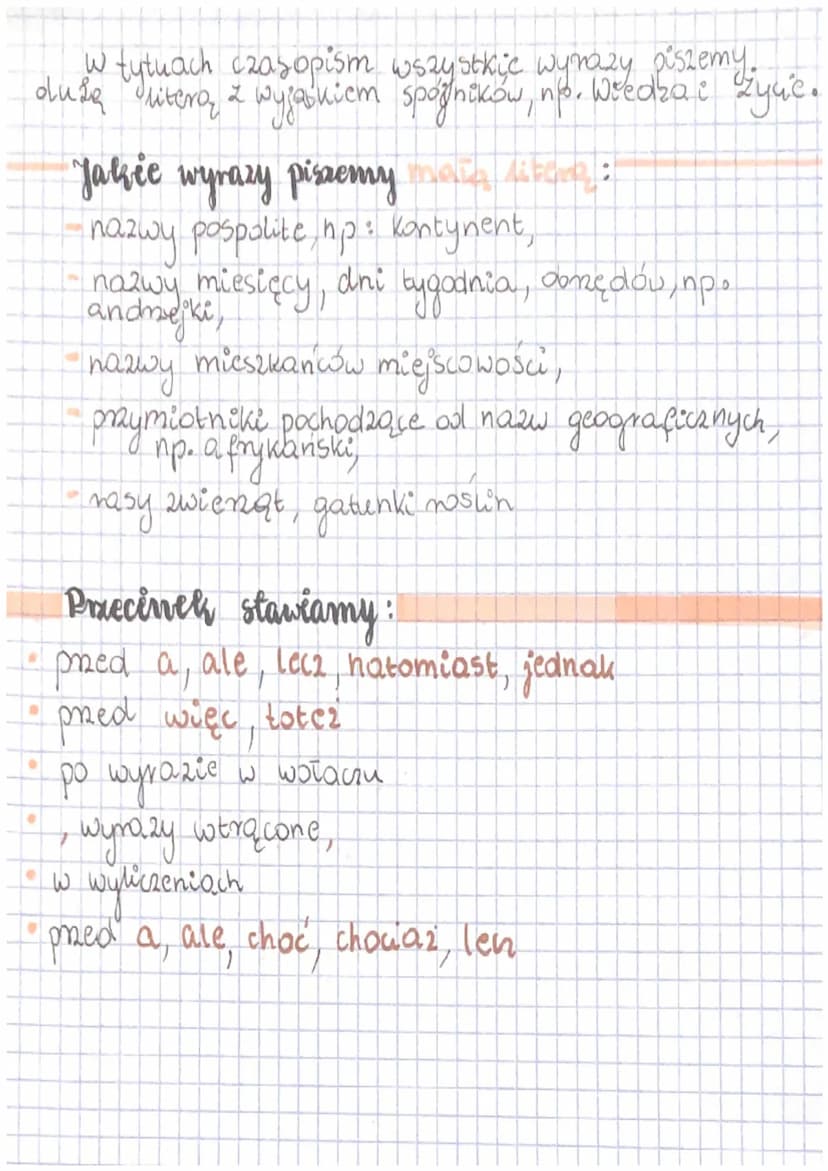 W tytuach czasopism wszystkie wyrazy piszemy
dużą literą z wyjątkiem spójników, np. Wiedza i Życie.
Jakie wyrazy piszemy małą literą:
- nazwy pospolite, np: kontynent,
- nazwy miesięcy, dni tygodnia, obrzędów, np.
andrzejki,
- nazwy mieszkańców miejscowości,
- przymiotniki pochodzące od nazw geograficznych,
np. afrykański,
- rasy zwierząt, gatunki roślin
Przecinek stawiamy:
• przed a, ale, lecz, natomiast, jednak
• przed więc, toteż
• po wyrazie w wołaczu
• , wyrazy wtrącone,
• w wyliczeniach
• przed a, ale, choć, chociaż, lecz